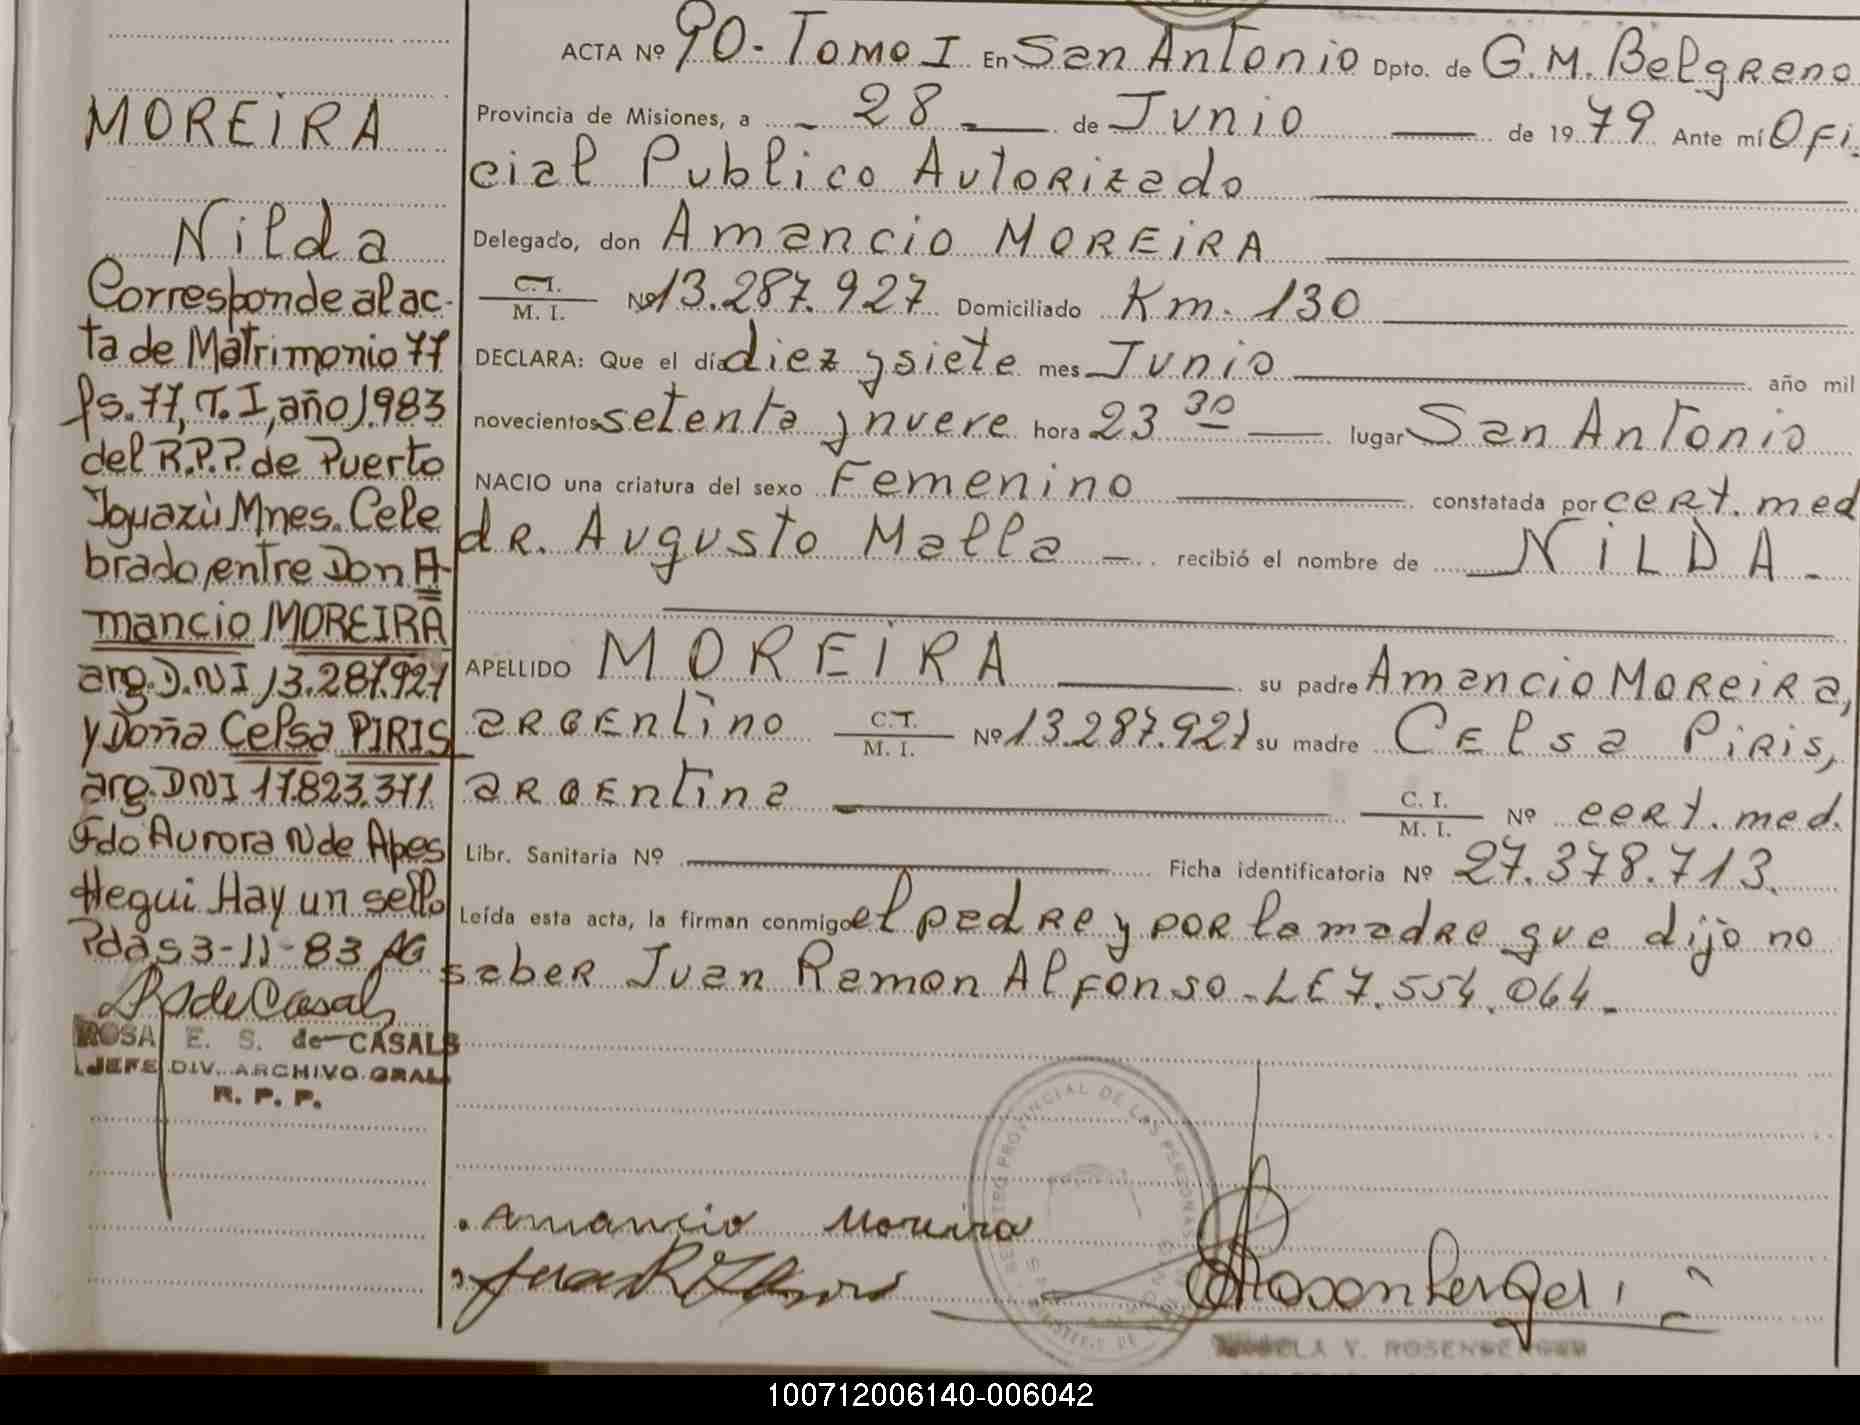 MOREIRA
Nilda
Corresponde al ac-
ta de Matrimonio 77
fs. 77, T. I, año 1983
del R.P.P. de Puerto
Iguazù Mnes. Cele
brado, entre Don A-
mancio MOREIRA
arg. D.N I 13.287.927
y Doña Celsa PIRIS
arg. DNI 17.823.371.
Fdo Aurora N de Apes
Hegui. Hay un sello
Pdas 3-11-83 AG
de Casals
ROSA E. S. de CASALS
JEFE DIV. ARCHIVO GRAL
R. P. P.
ACTA Nº 90- Tomo I En San Antonio Dpto. de G.M. Belgrano
Provincia de Misiones, a 28 de Junio de 1979 Ante mí Ofi.
cial Publico Autorizado
Delegado, don Amancio MOREIRA
C. I. M. I. Nº 13.287.927 Domiciliado Km. 130
DECLARA: Que el día diez y siete mes Junio año mil
novecientos setenta y nueve hora 23 30 lugar San Antonio
NACIO una criatura del sexo Femenino constatada por cert. med
dr. Augusto Malla recibió el nombre de NILDA -
APELLIDO MOREIRA su padre Amancio Moreira,
argentino C. I. M. I. Nº 13.287.927 su madre Celsa Piris,
argentina C. I. M. I. Nº cert. med.
Libr. Sanitaria Nº Ficha identificatoria Nº 27.378.713.
Leída esta acta, la firman conmigo el padre y por la madre que dijo no
saber Juan Ramon Alfonso - LE 7.554.064.-
REGISTRO PROVINCIAL DE LAS PERSONAS
Amancio Moreira
Juan R Alfonso
Rosenberger
Y. ROSENBERGER
100712006140-006042